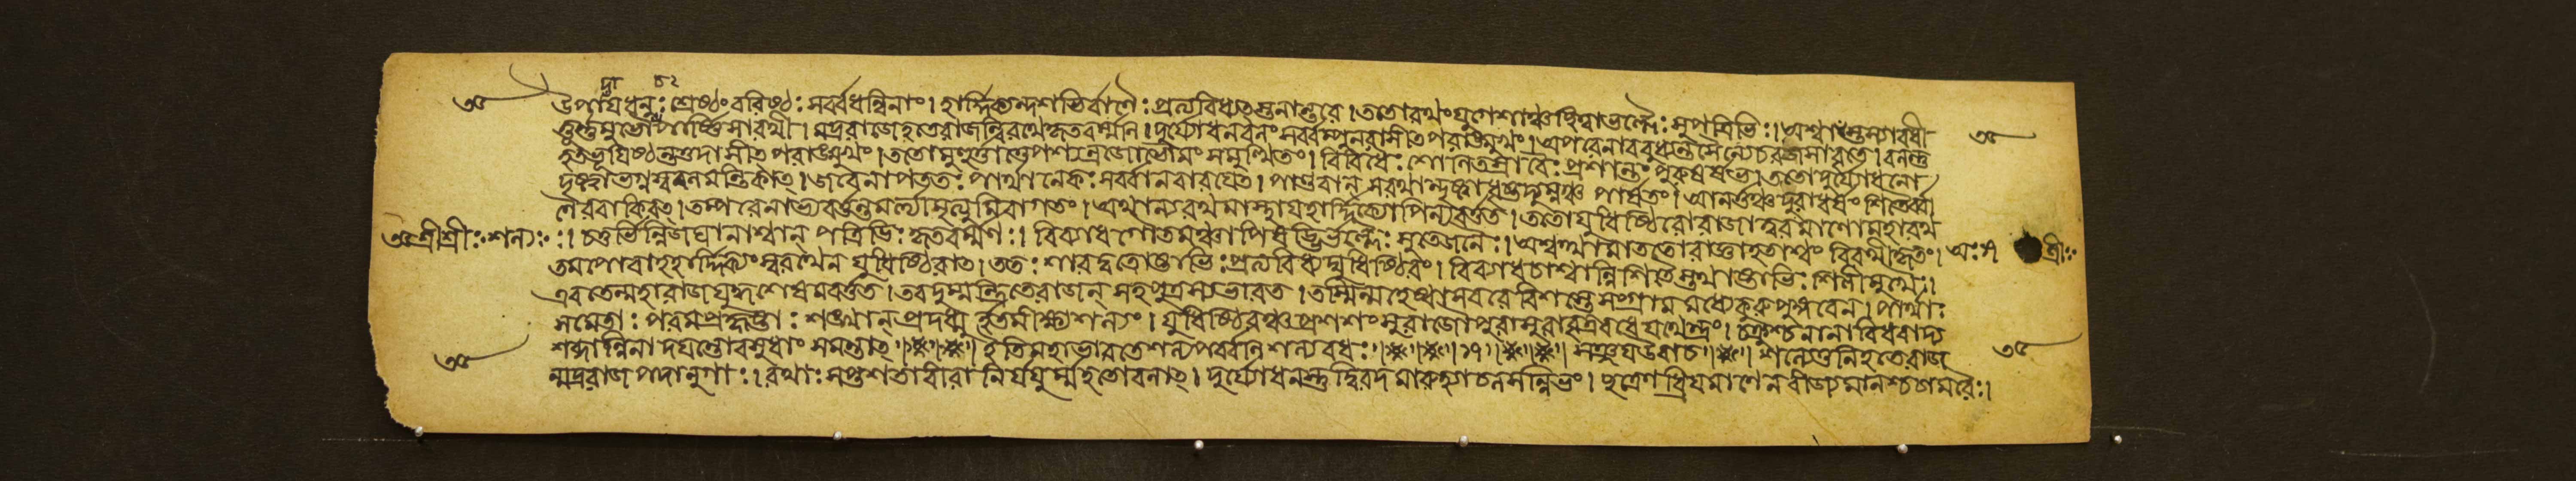 উপাদায়ধনুঃশ্রেষ্ঠংবরিষ্ঠঃসর্ব্বধন্বিনাং। হার্দ্দিক্যন্দশভির্বাণৈঃপ্রত্যবিধ্যৎস্তনান্তরে। ততোরথংযুগেশাঞ্চছিত্ত্বাভল্লৈঃসুপত্রিভিঃ। অশ্বাংস্তস্যাবধী
ত্তূর্ণ্ণমুভৌচপার্ষ্ণিসারথী। মদ্ররাজেহতেরাজন্বিরথেকৃতবর্ম্মণি। দুর্য্যোধনবলংসর্ব্বম্পুনরাসীৎপরাঙ্মুখং। অপরেনাববুধ্যন্তসৈন্যেচরজসাবৃতে। বলন্তু
হতভূয়িষ্ঠন্তত্তদাসীৎপরাঙ্মুখং। ততোমুহূর্ত্তাত্তেপশ্যন্রজোভৌমংসমুত্থিতং। বিবিধৈঃশোনিতস্রাবৈঃপ্রশান্তংপুরুষর্ষভ। ততোদুর্য্যোধনো
দৃষ্ট্বাভগ্নংস্ববলমন্তিকাৎ। জবেনাপততঃপার্থানেকঃসর্ব্বানবারয়ৎ। পাণ্ডবান্সরথান্দৃষ্ট্বাধৃষ্টদ্যুম্নঞ্চপার্ষতং। আনর্ত্তঞ্চদুরাধর্ষংশিতৈর্বা
ণৈরবাকিরৎ। তম্পরেনাভ্যবর্ত্তন্তমর্ত্যামৃত্যুমিবাগতং। অথান্যংরথমাস্থায়হার্দ্দিক্যোপিন্যবর্ত্তত। ততোযুধিষ্ঠিরোরাজাত্বরমাণোমহারথ
শ্রীশ্রীঃ শল্যঃ
ঃ। চতুর্ভির্ন্নিজঘানাশ্বান্পত্রিভিঃকৃতবর্ম্মণঃ। বিব্যাধগৌতমঞ্চাপিষড্ভির্ভল্লৈঃসুতেজনৈঃ। অশ্বত্থামাততোরাজ্ঞাহতাশ্বংবিরথীকৃতং।
অঃ ১৭
শ্রীঃ
তমপোবাহহার্দ্দিক্যংস্বরথেনযুধিষ্ঠিরাৎ। ততঃশারদ্বতোষ্টাভিঃপ্রত্যবিধ্যদ্যুধিষ্ঠিরং। বিব্যাধচাশ্বান্নিশিতৈস্তথাষ্টাভিঃশিলীমুখৈঃ।
এবমেতন্মহারাজযুদ্ধশেষমবর্ত্তত। তবদুর্ম্মন্ত্রিতেরাজন্সহপুত্রস্যভারত। তস্মিন্মহেষ্বাসবরেবিশস্তেসংগ্রামমধ্যেকুরুপুঙ্গবেন। পার্থাঃ
সমেতাঃপরমপ্রহৃষ্টাঃশঙ্খান্প্রদধ্মুর্হতমীক্ষ্যশল্যং। যুধিষ্ঠিরঞ্চপ্রশশংসুরাজৌপুরাসুরাবৃত্রবধেযথেন্দ্রং। চক্রুশ্চনানাবিধবাদ্য
শব্দান্নিনাদয়ন্তোবসুধাংসমন্তাৎ। ইতিমহাভারতেশল্যপর্ব্বনিশল্যবধঃ।। ১৭।। সঞ্জয়উবাচ।। শল্যেতুনিহতেরাজ
ন্মদ্ররাজপদানুগাঃ। রথাঃসপ্তশতাবীরানির্যযুর্ম্মহতোবলাৎ। দুর্য্যোধনস্তুদ্বিরদমারুহ্যাচলসন্নিভং। ছত্রেণধ্রিয়মাণেনবীজ্যমানশ্চচামরৈঃ।